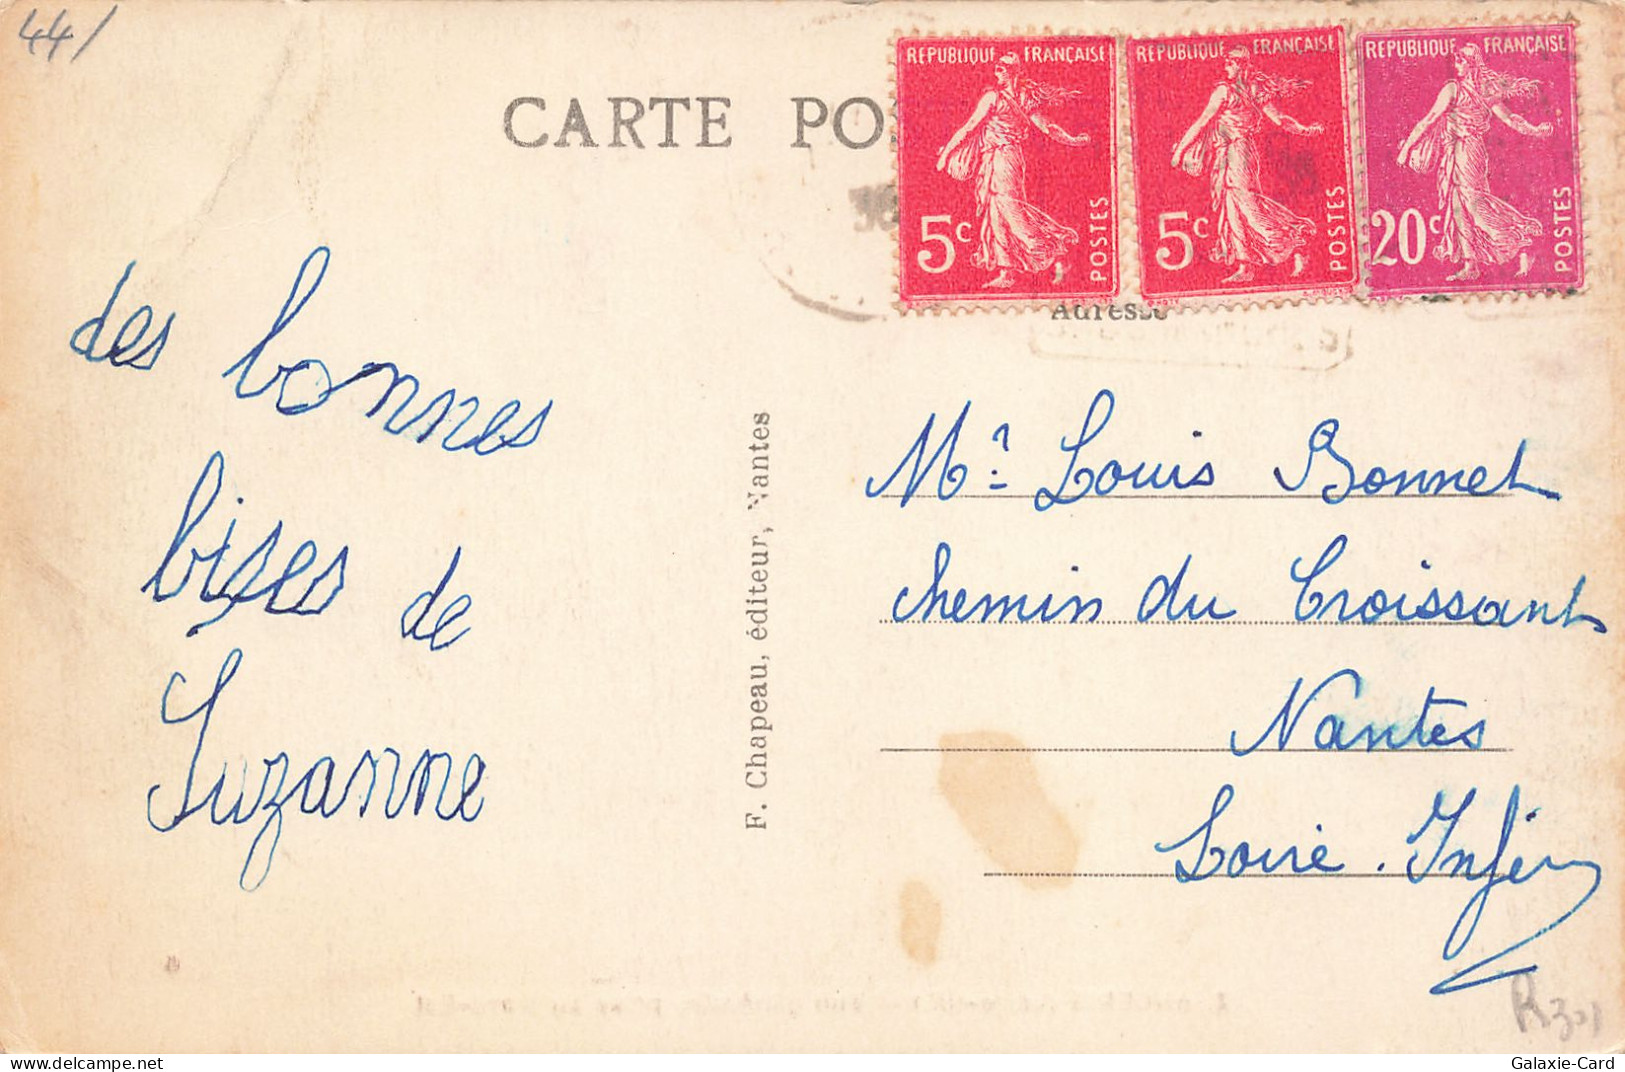 44/
CARTE PO
REPUBLIQUE FRANÇAISE
5c
POSTES
REPUBLIQUE FRANÇAISE
5c
POSTES
REPUBLIQUE FRANÇAISE
20c
POSTES
Adresse
des bonnes
bises de
Suzanne
F. Chapeau, éditeur, Nantes
Mr Louis Bonnet
Chemin du Croissant
Nantes
Loire-Infér
R301
Galaxie-Card